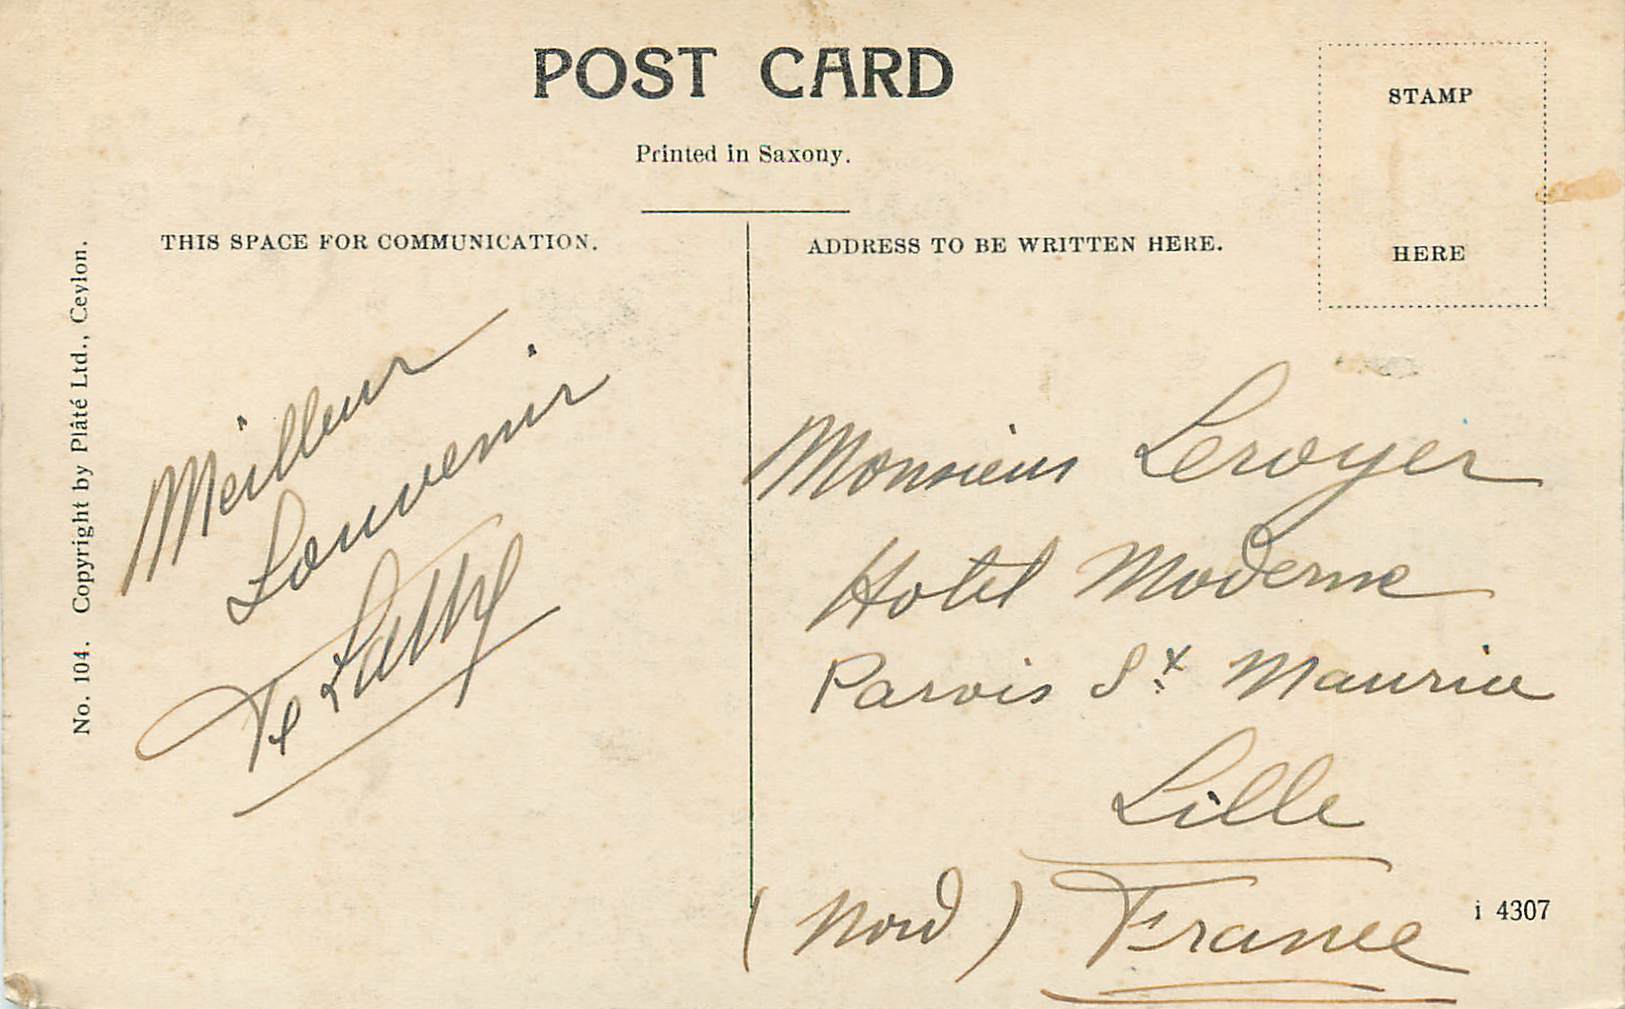 POST CARD
Printed in Saxony.
STAMP
HERE
THIS SPACE FOR COMMUNICATION.
ADDRESS TO BE WRITTEN HERE.
No. 104. Copyright by Plâté Ltd., Ceylon.
Meilleur
Souvenir
Monsieur Leroyer
Hotel Moderne
Parvis St Maurice
Lille
(Nord) France
i 4307